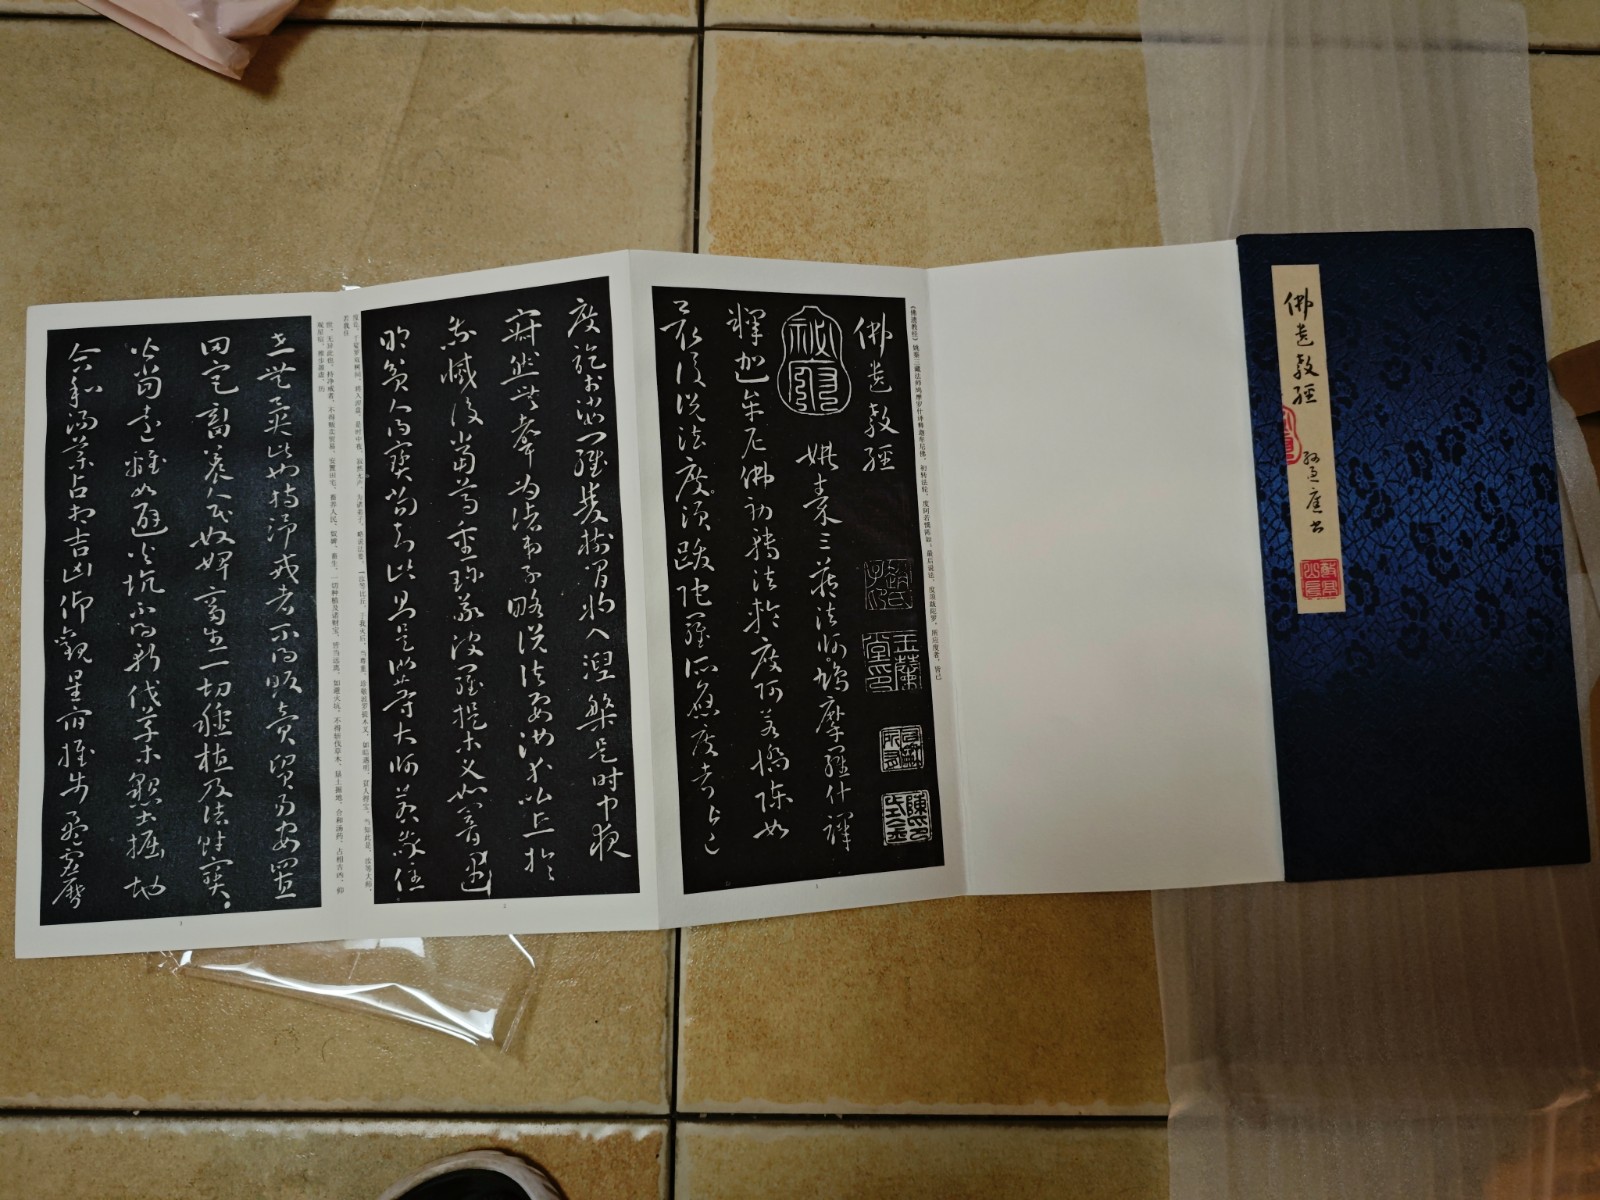 佛遺教經
孫過庭書
《佛遗教经》姚秦三藏法师鸠摩罗什译释迦牟尼佛，初转法轮，度阿若憍陈如，最后说法，度须跋陀罗，所应度者，皆已
佛遺教經
姚秦三藏法師鳩摩羅什譯
釋迦牟尼佛初轉法輪度阿若憍陳如
最後說法度須跋陀羅所應度者皆已
1
度訖於娑羅雙樹間將入涅槃是時中夜
寂然無聲為諸弟子略說法要汝等比丘於
我滅後當尊重珍敬波羅提木叉如闇遇
明貧人得寶當知此則是汝等大師若我住
2
度讫。于娑罗双树间，将入涅盘，是时中夜，寂然无声，为诸弟子，略说法要。汝等比丘，于我灭后，当尊重珍敬波罗提木叉，如暗遇明，贫人得宝，当知此是，汝等大师，
若我住
世，无异此也。持净戒者，不得贩卖贸易，安置田宅，畜养人民、奴婢、畜生，一切种植及诸财宝，皆当远离，如避火坑。不得斩伐草木，垦土掘地，合和汤药，占相吉凶，仰
观星宿，推步盈虚，历
世無異此也持淨戒者不得販賣貿易安置
田宅畜養人民奴婢畜生一切種植及諸財寶
皆當遠離如避火坑不得斬伐草木墾土掘地
合和湯藥占相吉凶仰觀星宿推步盈虛曆
3